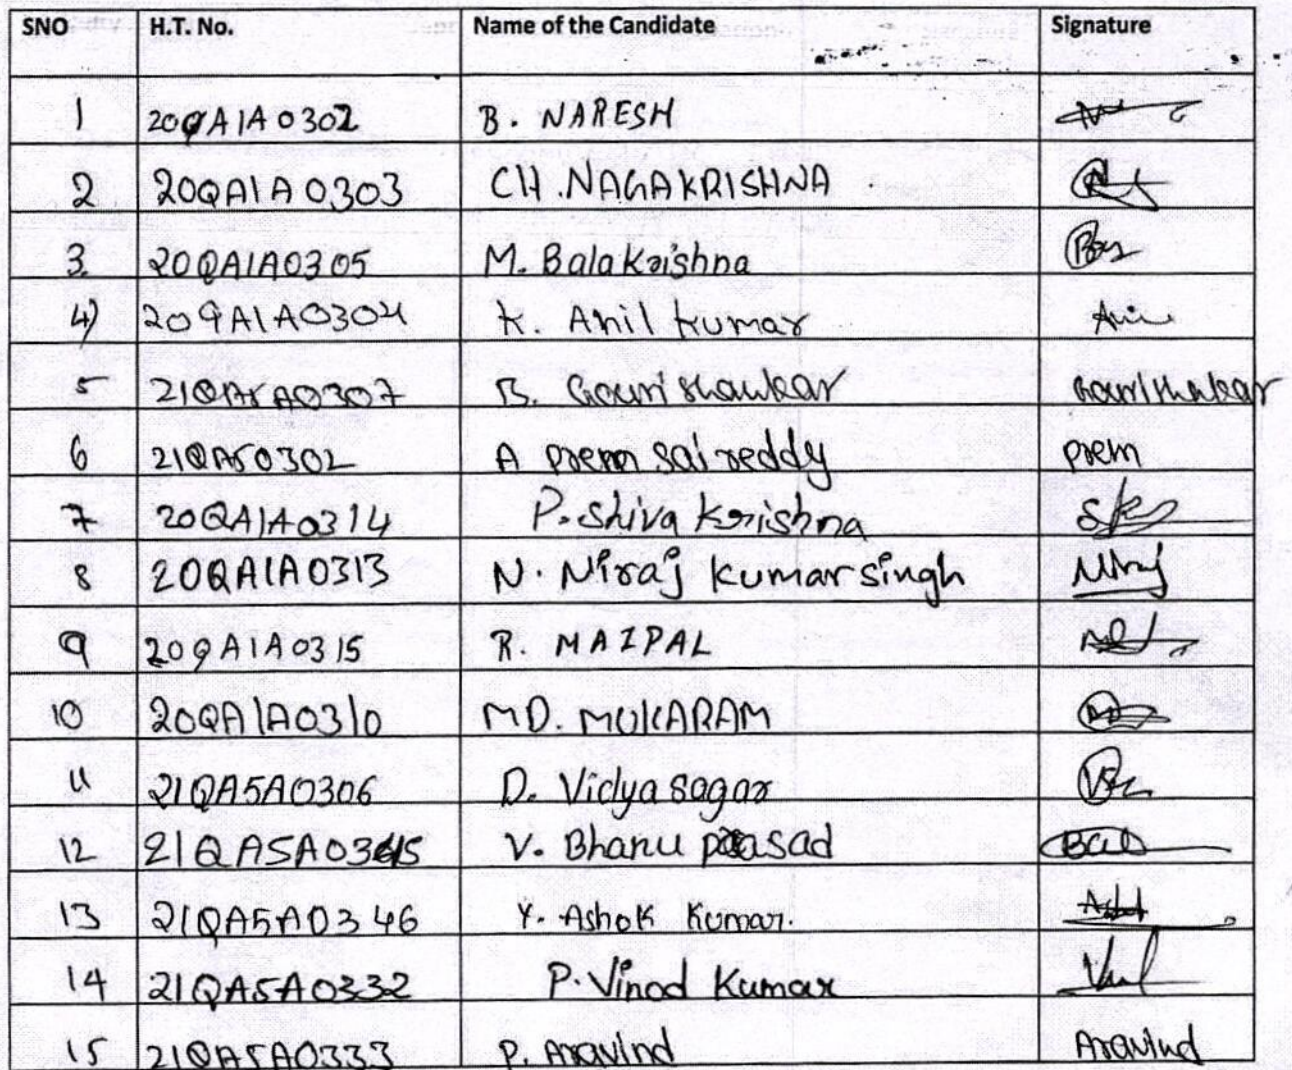 SNO H.T. No. Name of the Candidate Signature
1 20QA1A0302 B. NARESH
2 20QA1A0303 CH.NAGAKRISHNA
3. 20QA1A0305 M. Balakrishna
4) 20QA1A0304 K. Anil kumar
5 21QA5A0307 B. Gouri shankar
6 21QA50302 A prem sai reddy prem
7 20QA1A0314 P. Shiva Krishna
8 20QA1A0313 N. Niraj kumar singh Niraj
9 20QA1A0315 R. MAIPAL
10 20QA1A0310 MD. MUKARAM
11 21QA5A0306 D. Vidya sagar
12 21QA5A0345 V. Bhanu prasad
13 21QA5A0346 Y. Ashok Kumar.
14 21QA5A0332 P. Vinod Kumar
15 21QA5A0333 P. Aravind Aravind